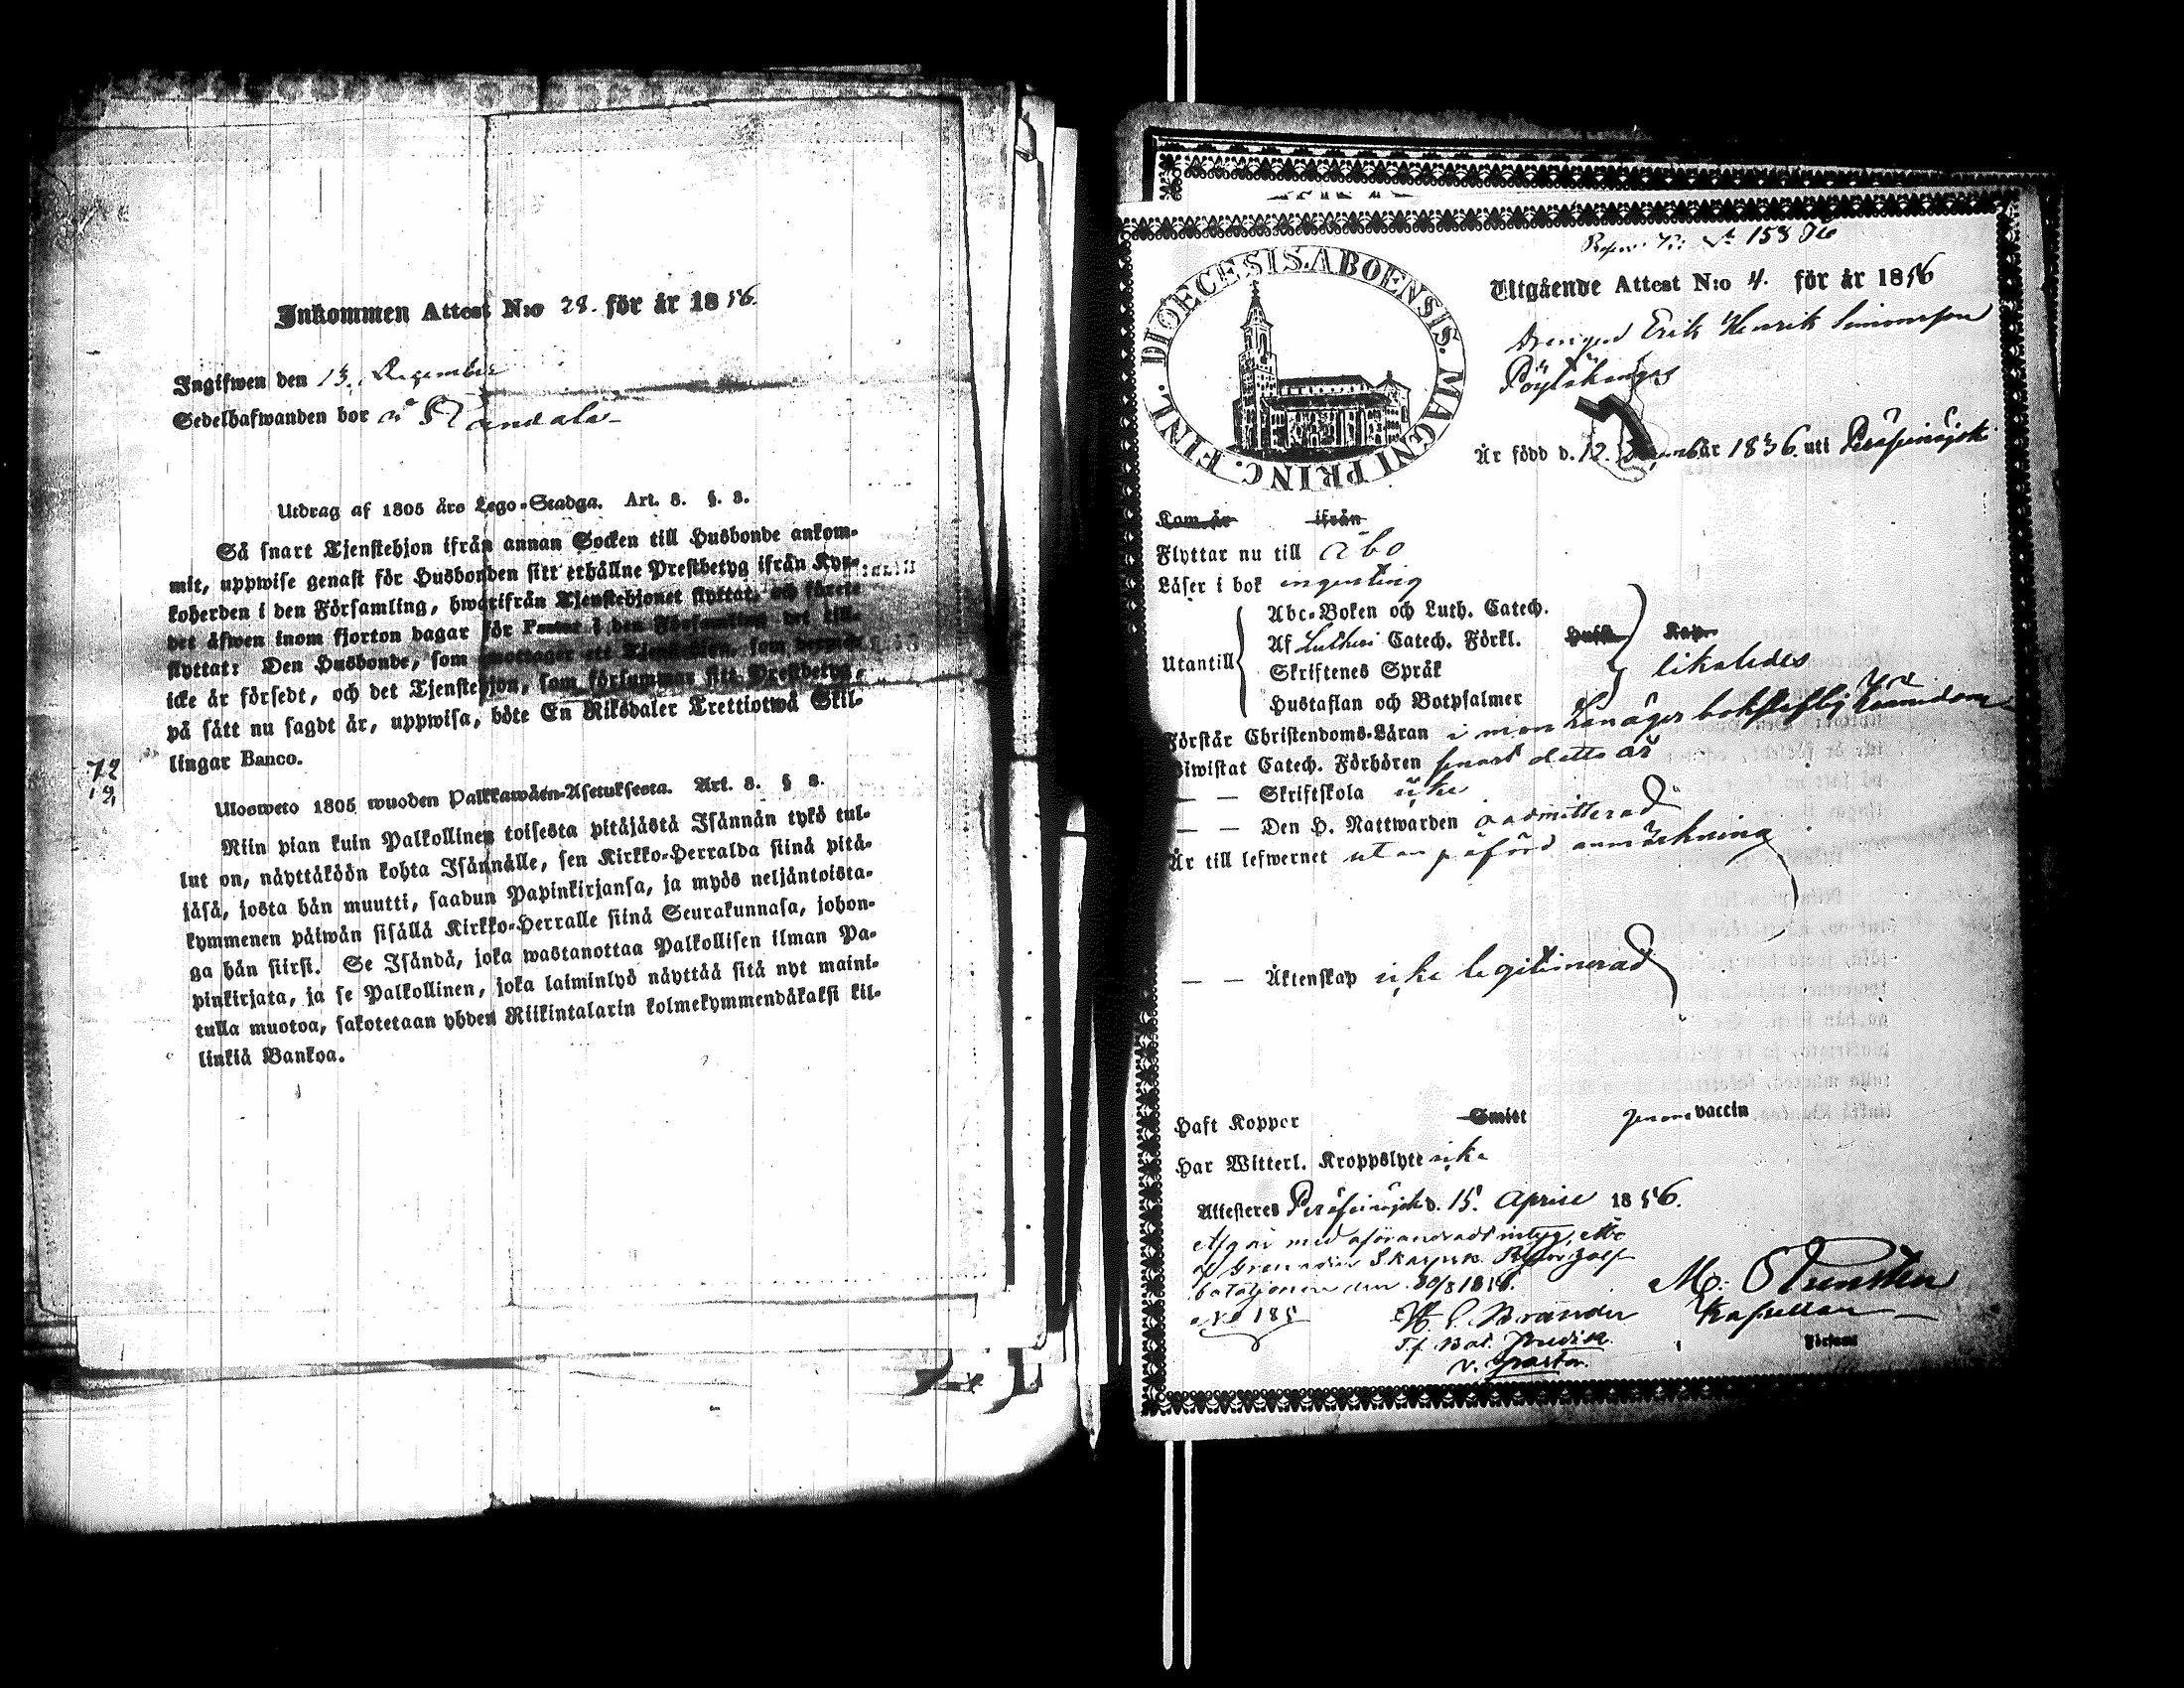 Inkommen Attest N:o 28. för år 1856.
Ingifwen den 13. December
Sedelhafwanden bor å
Utdrag af 1805 års Lego-Stadga. Art. 8. §. 8.
Så snart Tjenstehjon ifrån annan Socken till Husbonde ankom-
mit, uppwise genast för Husbonden sitt erhållne Prestbetyg ifrån Kyr-
koherden i den Församling, hwarifrån Tjenstehjonet flyttat, och förete
det äfwen inom fjorton dagar för Pastor i den Församling det till-
flyttat: Den Husbonde, som emottager ett Tjenstehjon, som dermed
icke är försedt, och det Tjenstehjon, som försummar sitt Prestbetyg,
på sätt nu sagdt är, uppwisa, böte En Riksdaler Trettiotwå Skil-
lingar Banco.
Ulosweto 1805 wuoden Palkkawäen-Asetuksesta. Art. 8. § 8.
Niin pian kuin Palkollinen toisesta pitäjästä Isännän tykö tul-
lut on, näyttäköön kohta Isännälle, sen Kirkko-Herralda siinä pitä-
jäsä, josta hän muutti, saadun Papinkirjansa, ja myös neljäntoista-
kymmenen päiwän sisällä Kirkko-Herralle siinä Seurakunnasa, johon-
ga hän siirsi. Se Isändä, joka wastanottaa Palkollisen ilman Pa-
pinkirjata, ja se Palkollinen, joka laiminlyö näyttää sitä nyt maini-
tulla muotoa, sakotetaan yhden Riikintalarin kolmekymmendäkaksi kil-
linkiä Bankoa.
72
DIOECESIS. ABOENSIS. MAGNI PRINC. FINL.
153
Utgående Attest N:o 4. för år 1856
Drengen Erik Henrik Simonsson
Är född d. 12. år 1836. uti Peräseinäjoki
Kom år ifrån
Flyttar nu till Åbo
Läser i bok ingenting
Utantill
Abc-Boken och Luth. Catech.
Af Lutheri Catech. Förkl.
Skriftenes Språk
Hustaflan och Botpsalmer
likaledes
Förstår Christendoms-Läran i mon han äger bokstaflig kännedom
Biwistat Catech. Förhören detta år
— — Skriftskola icke
— — Den H. Nattwarden oadmitterad
Är till lefwernet utan påförd anmärkning
— — Äktenskap icke legitimerad
Haft Koppor Smitt genom vaccin
Har Witterl. Kroppslyte icke
Attesteras Peräseinäjoki d. 15. Aprill 1856.
Afgår med
bataljonen den 30/8 1856.
No 185
Brander
Kapellan
v. Pastor.
Församl